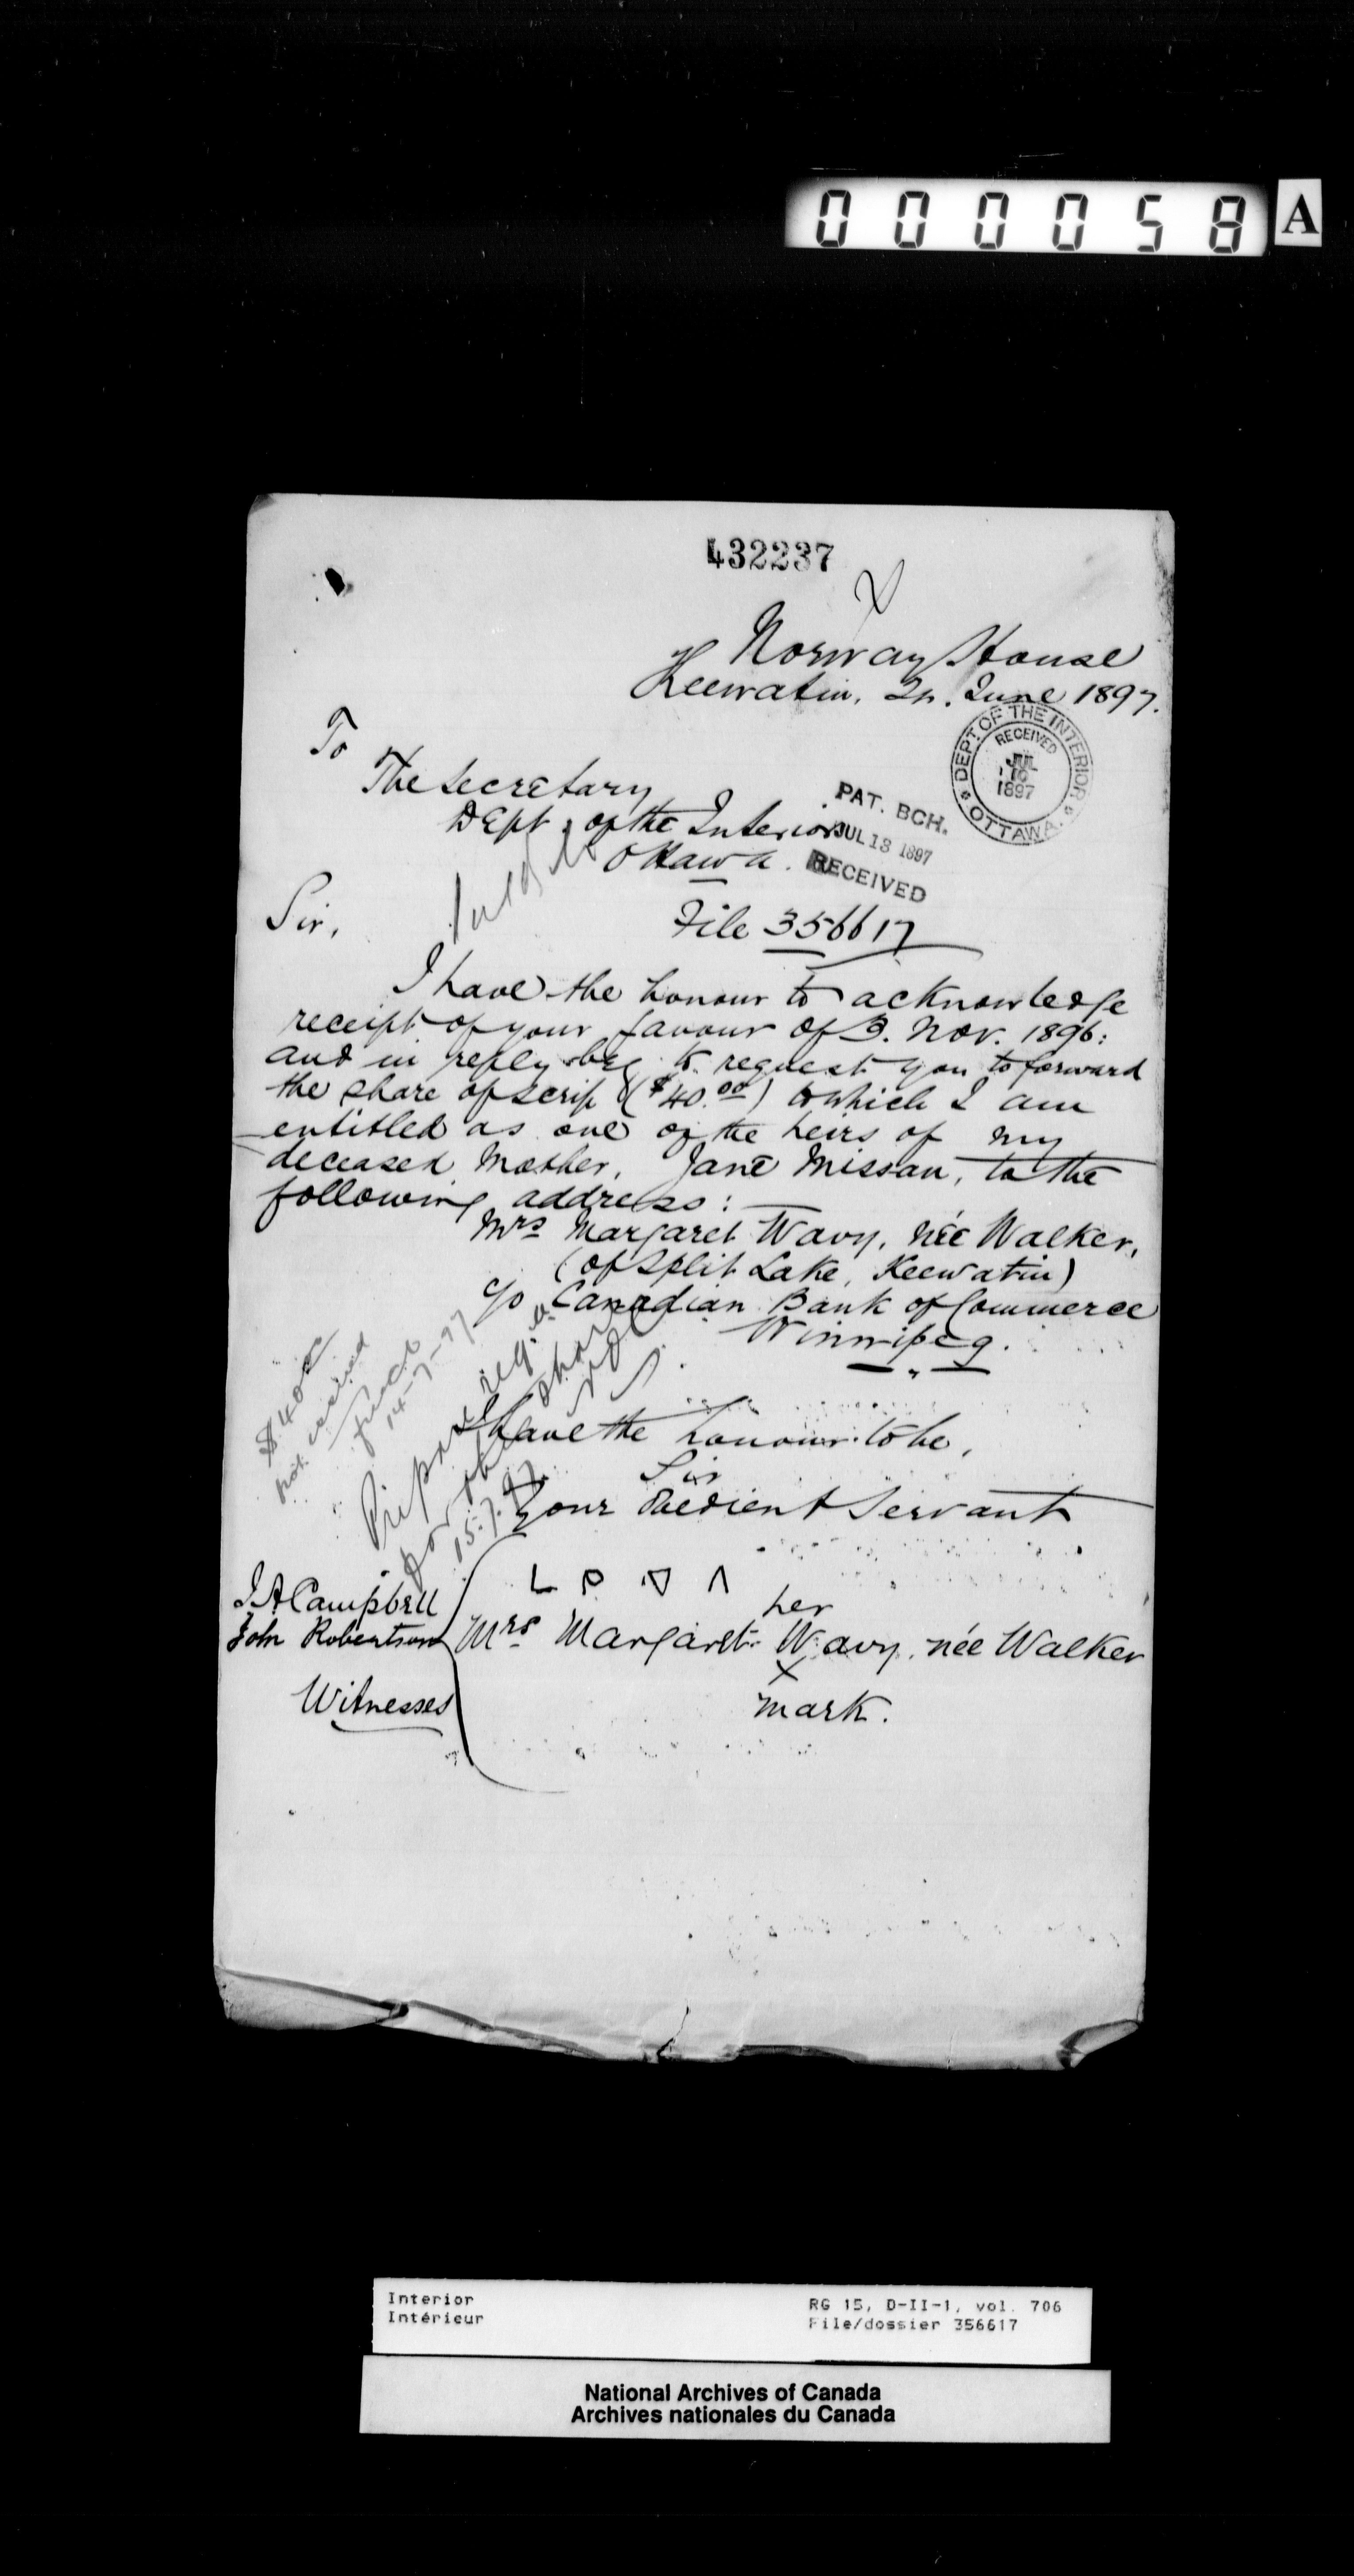 000058 A
432237
Norway House
Keewatin, 24. June 1897.
To
The Secretary
Dept. of the Interior
Ottawa.
DEPT. OF THE INTERIOR
RECEIVED
JUL
1897
OTTAWA.
PAT. BCH.
JUL 13 1897
RECEIVED
Sir,
File 356617
I have the honour to acknowledge
receipt of your favour of 3. Nov. 1896:
and in reply beg to request you to forward
the share of scrip ($40.00) to which I am
entitled as one of the heirs of my
deceased Mother, Jane Missan, to the
following address:
Mrs Margaret Wavy, née Walker,
(of Split Lake, Keewatin)
c/o Canadian Bank of Commerce
Winnipeg.
$40
not
14-7-97
Prepare req.
for the share
15.7.97
I have the honour to be,
Sir
Your Obedient Servant
ᒪ ᑭ
her
Mrs Margaret Wavy, née Walker
X
mark.
J. A Campbell
John Robertson
Witnesses
Interior
Intérieur
RG 15, D-II-1, vol. 706
File/dossier 356617
National Archives of Canada
Archives nationales du Canada